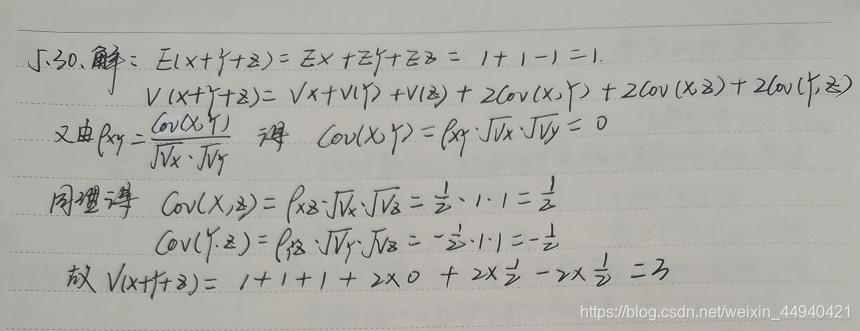 5.30. 解: E(X+Y+Z) = EX + EY + EZ = 1+1-1 = 1.
V(X+Y+Z) = VX + V(Y) + V(Z) + 2Cov(X,Y) + 2Cov(X,Z) + 2Cov(Y,Z)
又由 ρxy = Cov(X,Y)/√Vx·√Vy 得 Cov(X,Y) = ρxy·√Vx·√Vy = 0
同理得 Cov(X,Z) = ρxz·√Vx·√Vz = 1/2·1·1 = 1/2
Cov(Y,Z) = ρyz·√Vy·√Vz = -1/2·1·1 = -1/2
故 V(X+Y+Z) = 1+1+1+2×0+2×1/2-2×1/2 = 3
https://blog.csdn.net/weixin_44940421